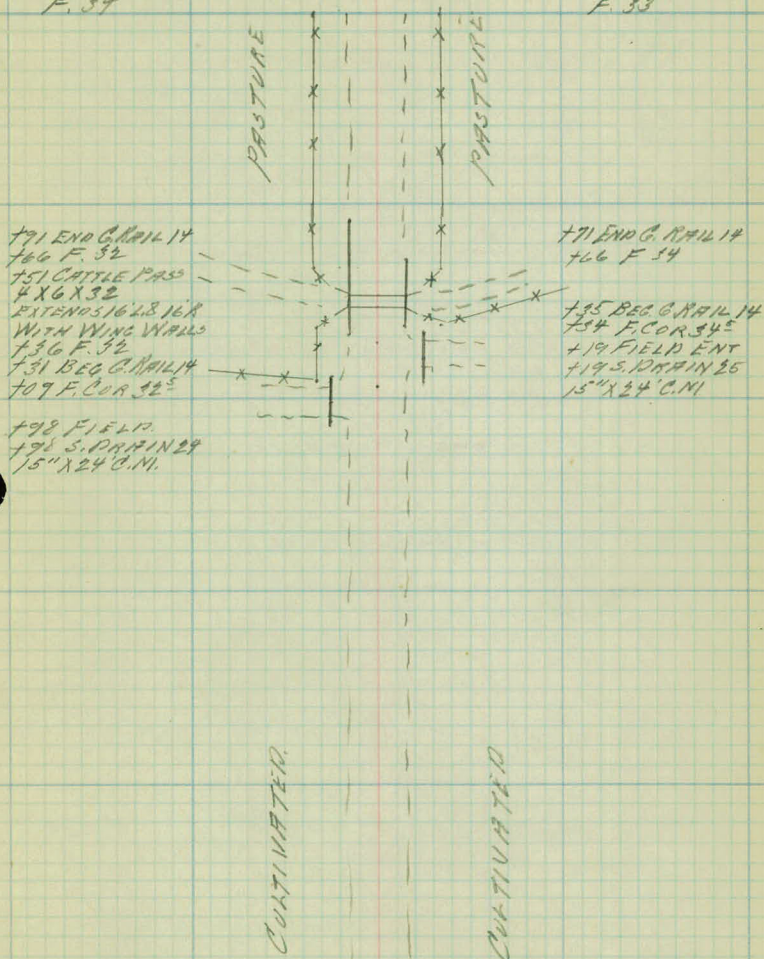 F. 33
PASTURE
PASTURE
+91 END G. RAIL 14
+66 F. 32
+51 CATTLE PASS
4 X 6 X 32
EXTENDS 16' L & 16' R
WITH WING WALLS
+36 F. 32
+31 BEG G. RAIL 14
+09 F. COR 32⁵
+98 FIELD
+98 S. DRAIN 24
15" X 24' C.M.
+71 END G. RAIL 14
+66 F 34
+35 BEG. G RAIL 14
+34 F. COR 34⁵
+19 FIELD ENT
+19 S. DRAIN 25
15" X 24' C.M
CULTIVATED.
CULTIVATED